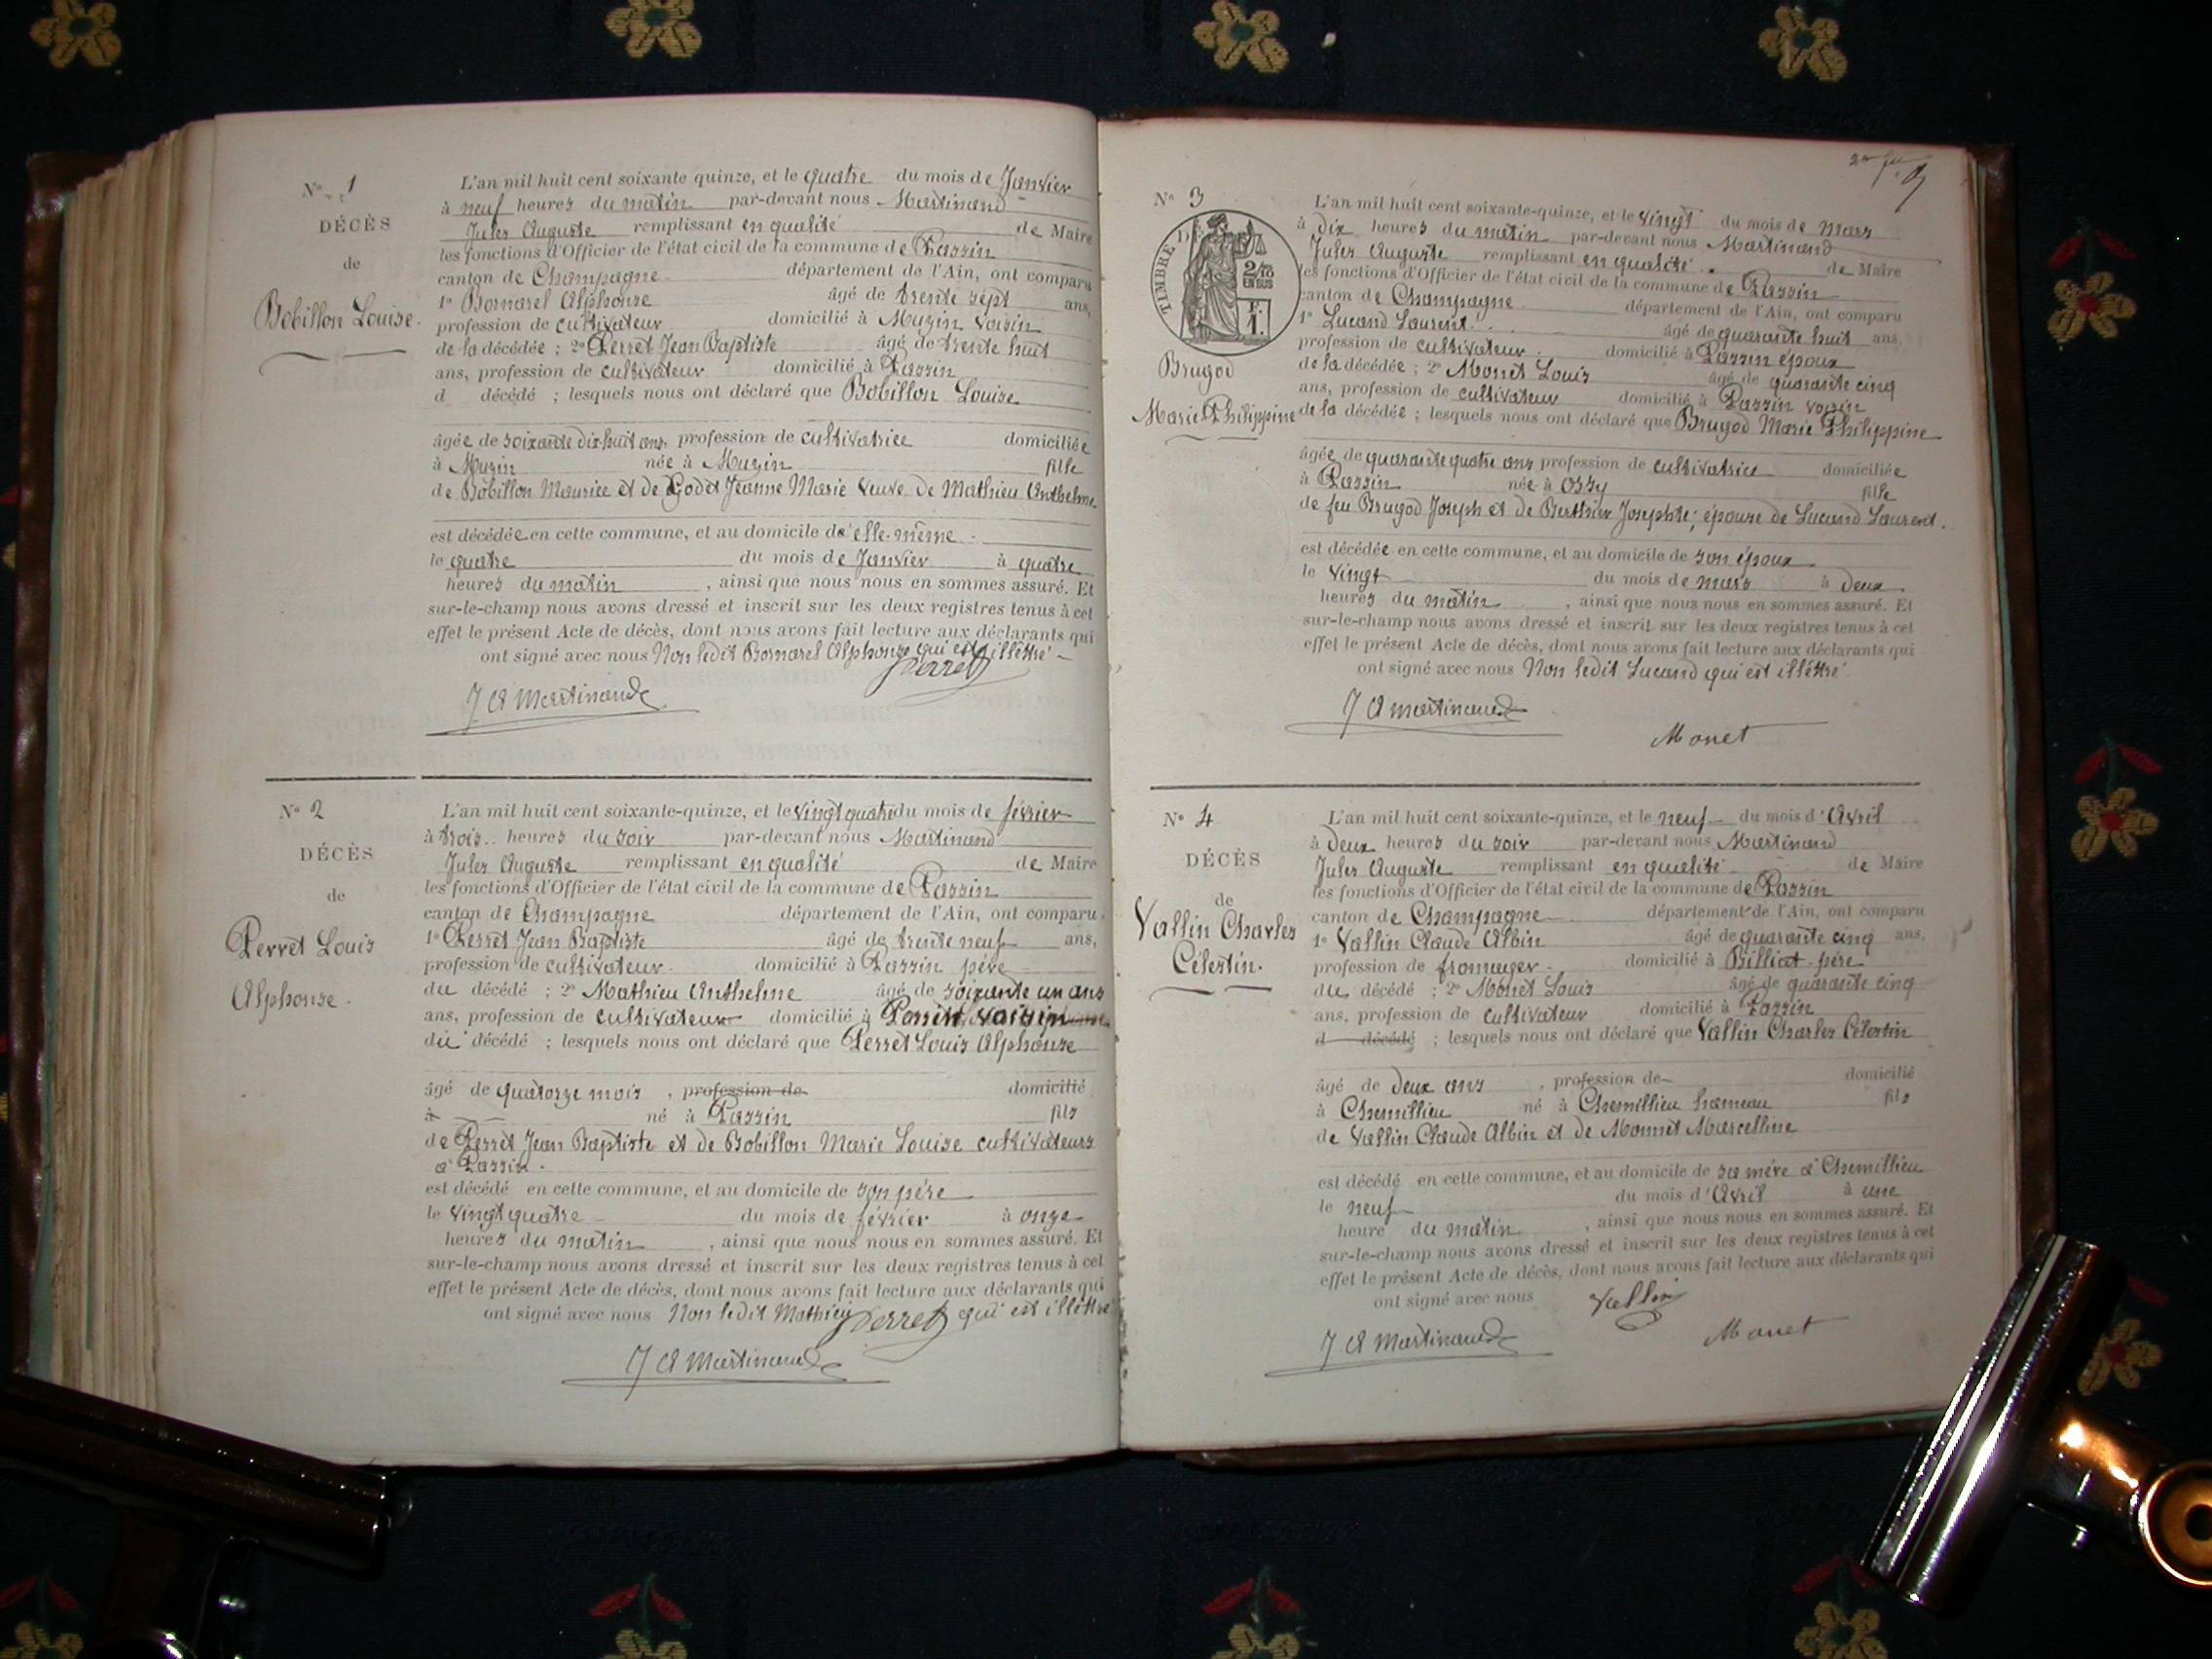 N° 1
DÉCÈS
de
Bobillon Louise.
L'an mil huit cent soixante quinze, et le quatre du mois de Janvier
à neuf heures du matin par-devant nous Martinand
Jules Auguste remplissant en qualité de Maire
les fonctions d'Officier de l'état civil de la commune de Passin
canton de Champagne département de l'Ain, ont comparu
1° Bornarel Alphonse âgé de trente sept ans,
profession de cultivateur domicilié à Muzin voisin
de la décédée ; 2° Perret Jean Baptiste âgé de trente huit
ans, profession de cultivateur domicilié à Passin
d décédé ; lesquels nous ont déclaré que Bobillon Louise
âgée de soixante dix huit ans, profession de cultivatrice domiciliée
à Muzin née à Muzin fille
de Bobillon Maurice et de Godet Jeanne Marie veuve de Mathieu Anthelme
est décédée en cette commune, et au domicile d'elle-même
le quatre du mois de Janvier à quatre
heures du matin , ainsi que nous nous en sommes assuré. Et
sur-le-champ nous avons dressé et inscrit sur les deux registres tenus à cet
effet le présent Acte de décès, dont nous avons fait lecture aux déclarants qui
ont signé avec nous Non ledit Bornarel Alphonse qui est illétré
Perret
J A Martinand
N° 2
DÉCÈS
de
Perret Louis
Alphonse.
L'an mil huit cent soixante-quinze, et le vingt quatre du mois de février
à trois heures du soir par-devant nous Martinand
Jules Auguste remplissant en qualité de Maire
les fonctions d'Officier de l'état civil de la commune de Passin
canton de Champagne département de l'Ain, ont comparu
1° Perret Jean Baptiste âgé de trente neuf ans,
profession de cultivateur domicilié à Passin père
du décédé ; 2° Mathieu Anthelme âgé de soixante un ans
ans, profession de cultivateur domicilié à voisin
du décédé ; lesquels nous ont déclaré que Perret Louis Alphonse
âgé de quatorze mois , profession de domicilié
à né à Passin fils
de Perret Jean Baptiste et de Bobillon Marie Louise cultivateurs
à Passin.
est décédé en cette commune, et au domicile de son père
le vingt quatre du mois de février à onze
heures du matin , ainsi que nous nous en sommes assuré. Et
sur-le-champ nous avons dressé et inscrit sur les deux registres tenus à cet
effet le présent Acte de décès, dont nous avons fait lecture aux déclarants qui
ont signé avec nous Non ledit Mathieu qui est illétré
Perret
J A Martinand
N° 3
TIMBRE
2/10
EN SUS
F.
1.
Brugod
Marie Philippine
L'an mil huit cent soixante-quinze, et le vingt du mois de mars
à dix heures du matin par-devant nous Martinand
Jules Auguste remplissant en qualité de Maire
les fonctions d'Officier de l'état civil de la commune de Passin
canton de Champagne département de l'Ain, ont comparu
1° Lucand Laurent âgé de quarante huit ans,
profession de cultivateur domicilié à Passin époux
de la décédée ; 2° Monet Louis âgé de quarante cinq
ans, profession de cultivateur domicilié à Passin voisin
de la décédée ; lesquels nous ont déclaré que Brugod Marie Philippine
âgée de quarante quatre ans profession de cultivatrice domiciliée
à Passin née à Ossy fille
de feu Brugod Joseph et de Berthier Josephte; épouse de Lucand Laurent.
est décédée en cette commune, et au domicile de son époux
le vingt du mois de mars à deux
heures du matin , ainsi que nous nous en sommes assuré. Et
sur-le-champ nous avons dressé et inscrit sur les deux registres tenus à cet
effet le présent Acte de décès, dont nous avons fait lecture aux déclarants qui
ont signé avec nous Non ledit Lucand qui est illétré
J A Martinand
Monet
N° 4
DÉCÈS
de
Vallin Charles
Célestin.
L'an mil huit cent soixante-quinze, et le neuf du mois d'Avril
à deux heures du soir par-devant nous Martinand
Jules Auguste remplissant en qualité de Maire
les fonctions d'Officier de l'état civil de la commune de Passin
canton de Champagne département de l'Ain, ont comparu
1° Vallin Claude Albin âgé de quarante cinq ans,
profession de fromager domicilié à Billiat père
du décédé ; 2° Monet Louis âgé de quarante cinq
ans, profession de cultivateur domicilié à Passin
d décédé ; lesquels nous ont déclaré que Vallin Charles Célestin
âgé de deux ans , profession de domicilié
à Chemillieu né à Chemillieu hameau fils
de Vallin Claude Albin et de Monnet Marcelline
est décédé en cette commune, et au domicile de sa mère à Chemillieu
le neuf du mois d'Avril à une
heure du matin , ainsi que nous nous en sommes assuré. Et
sur-le-champ nous avons dressé et inscrit sur les deux registres tenus à cet
effet le présent Acte de décès, dont nous avons fait lecture aux déclarants qui
ont signé avec nous Vallin
J A Martinand
Monet